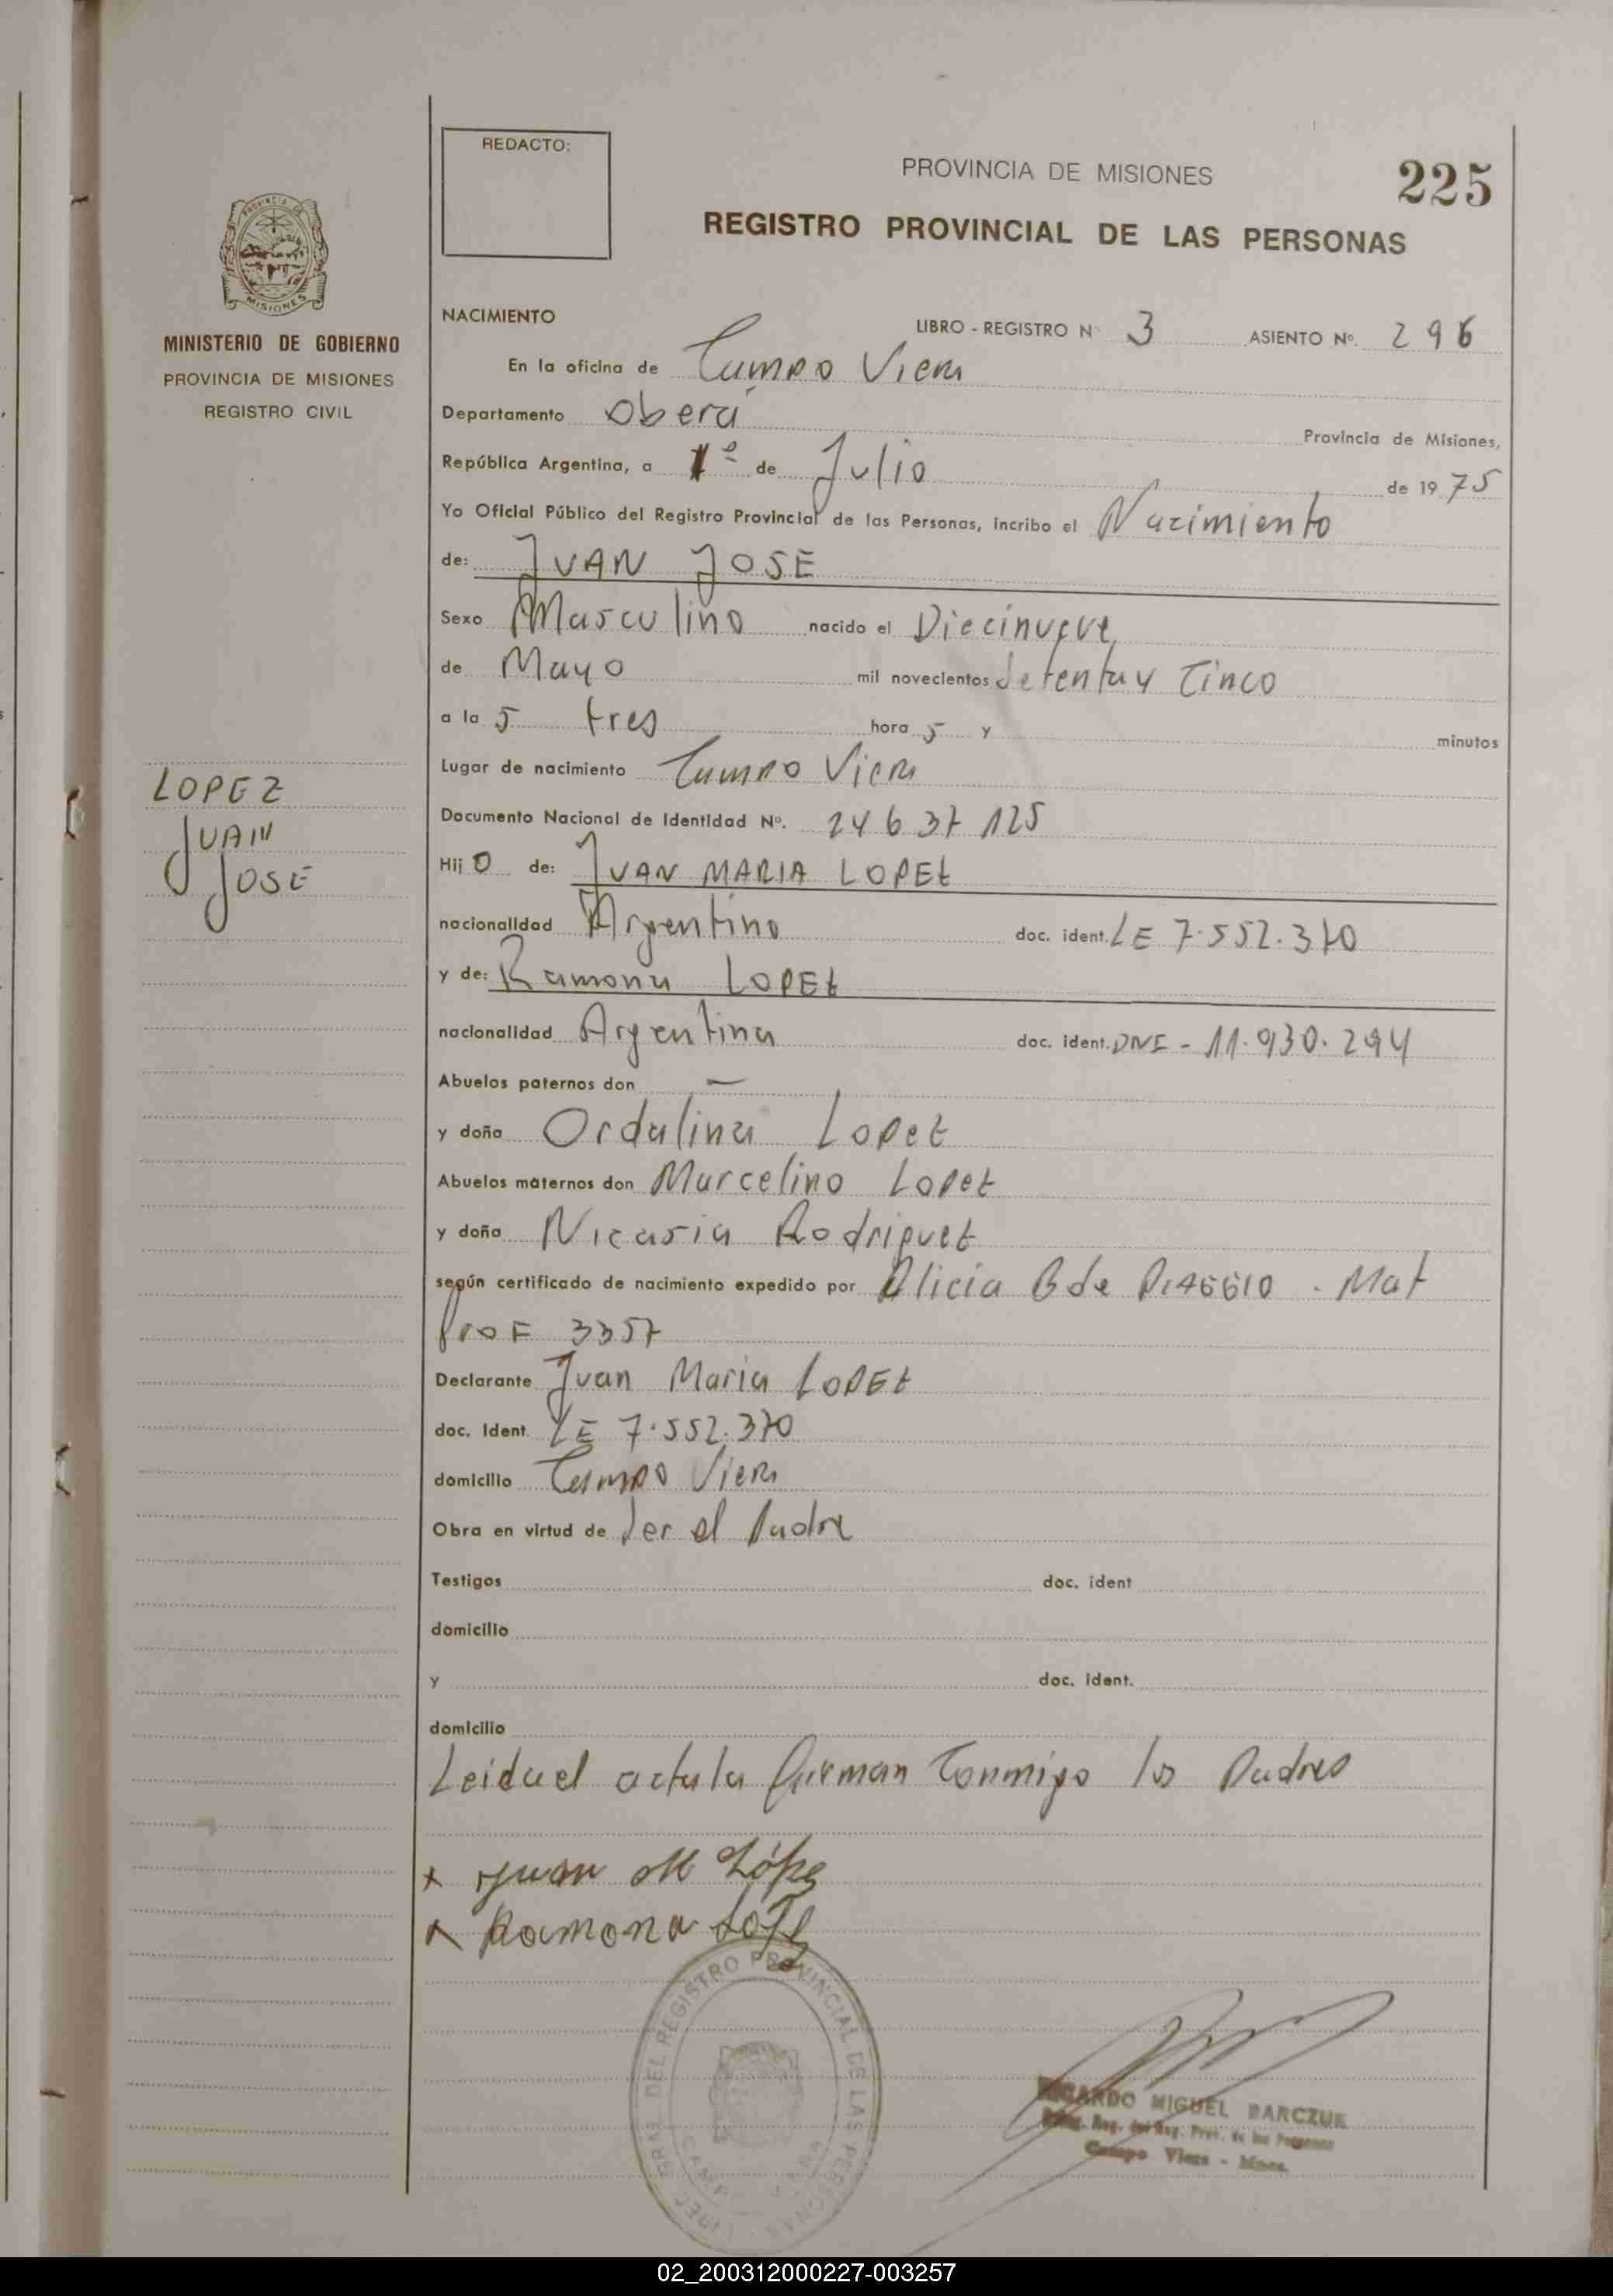 REDACTO:
PROVINCIA DE MISIONES
225
REGISTRO PROVINCIAL DE LAS PERSONAS
MISIONES
MINISTERIO DE GOBIERNO
PROVINCIA DE MISIONES
REGISTRO CIVIL
NACIMIENTO
LIBRO - REGISTRO Nº 3 ASIENTO Nº. 296
En la oficina de Campo Viera
Departamento Oberá Provincia de Misiones,
República Argentina, a 1º de Julio de 1975
Yo Oficial Público del Registro Provincial de las Personas, incribo el Nacimiento
de: JUAN JOSE
Sexo Masculino nacido el Diecinueve
de Mayo mil novecientos Setenta y Cinco
a la s tres hora s y minutos
Lugar de nacimiento Campo Viera
LOPEZ
JUAN
JOSE
Documento Nacional de Identidad Nº. 24 637 125
Hij o de: JUAN MARIA LOPEZ
nacionalidad Argentino doc. ident. LE 7.552.370
y de: Ramona LOPEZ
nacionalidad Argentina doc. ident. DNI - 11.930.294
Abuelos paternos don —
y doña Ordalina Lopez
Abuelos maternos don Marcelino Lopez
y doña Nicasia Rodriguez
según certificado de nacimiento expedido por Alicia B de . Mat
Prof 3357
Declarante Juan Maria LOPEZ
doc. Ident. LE 7.552.370
domicilio Campo Viera
Obra en virtud de Ser el Padre
Testigos doc. ident
domicilio
y doc. ident.
domicilio
Leida el acta la firman Conmigo los Padres
x Juan M López
x Ramona
DEL REGISTRO PROVINCIAL DE LAS PERSONAS
RICARDO MIGUEL BARCZUK
Reg. del Reg. Prov. de las Personas
Campo Viera - Mnes.
02_200312000227-003257